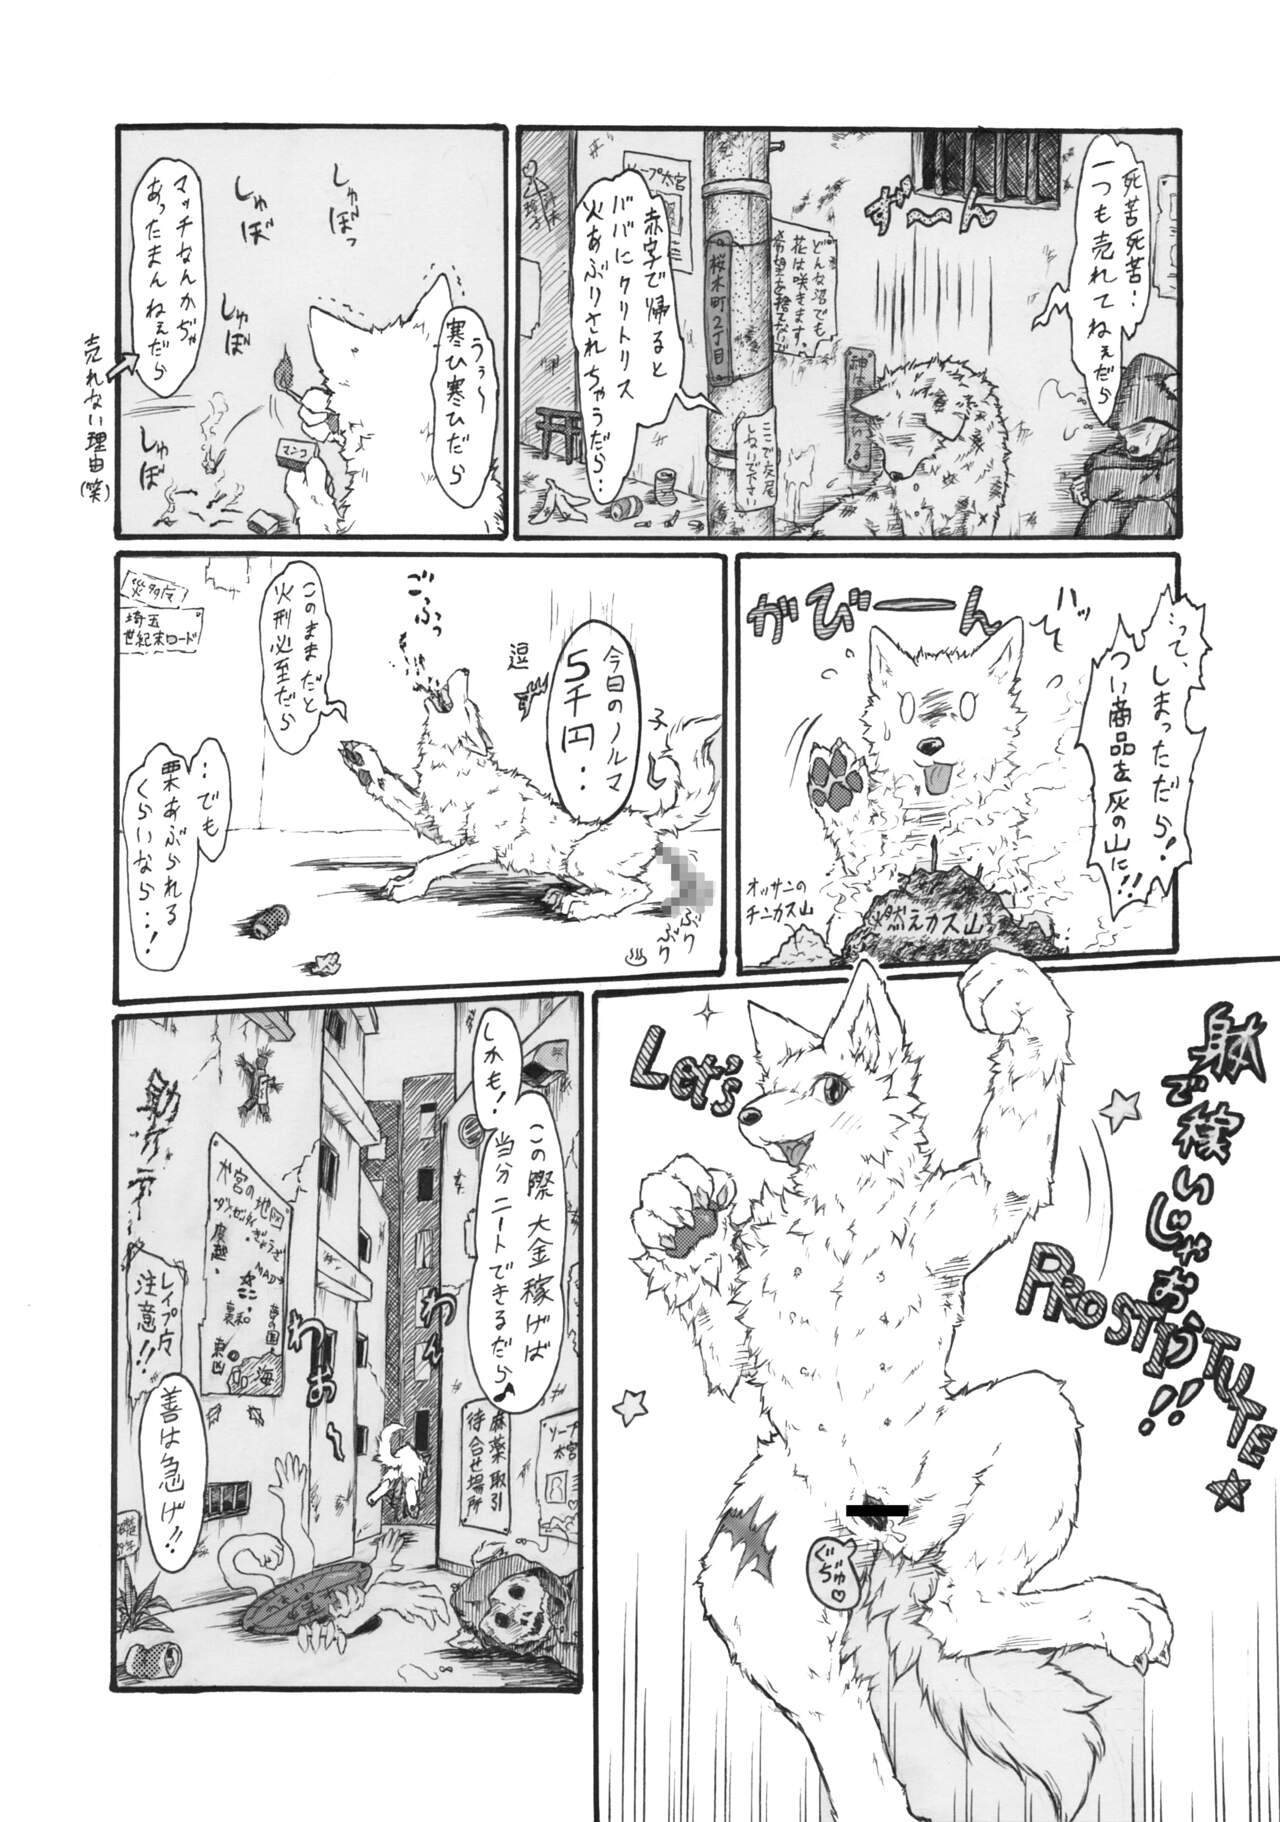 死苦死苦‥
一つも売れてねぇだら
ず〜〜ん
ソープ大宮
どんな沼でも
花は咲きます。
希望を捨てないで
桜木町2丁目
ここで交尾
しないで下さい
赤字で帰ると
ババにクリトリス
火あぶりされちゃうだら‥
うぅ〜
寒ひ寒ひだら
しゅぼっ
しゅぼ
しゅぼ
しゅぼ
マンコ
マッチなんかぢゃ
あったまんねぇだら
売れない理由
(笑)
‥って、しまっただら!
つい商品を灰の山に!!
がびーん
オッサンの
チンカス山
燃えカス山
今日のノルマ
5千円‥
逗子
ごふっ
このままだと
火刑必至だら
‥でも
栗あぶられる
くらいなら‥!
埼玉
世紀末ロード
躰で稼いじゃおう!!
Let's
PROSTITUTE☆
ぐぢゅ♡
この際大金稼げば
しかも!当分ニートできるだら♪
わん
わお〜
大宮の地図
東
海
レイプ魔
注意!!
善は急げ!!
麻薬取引
待合せ場所
ソープ
大宮